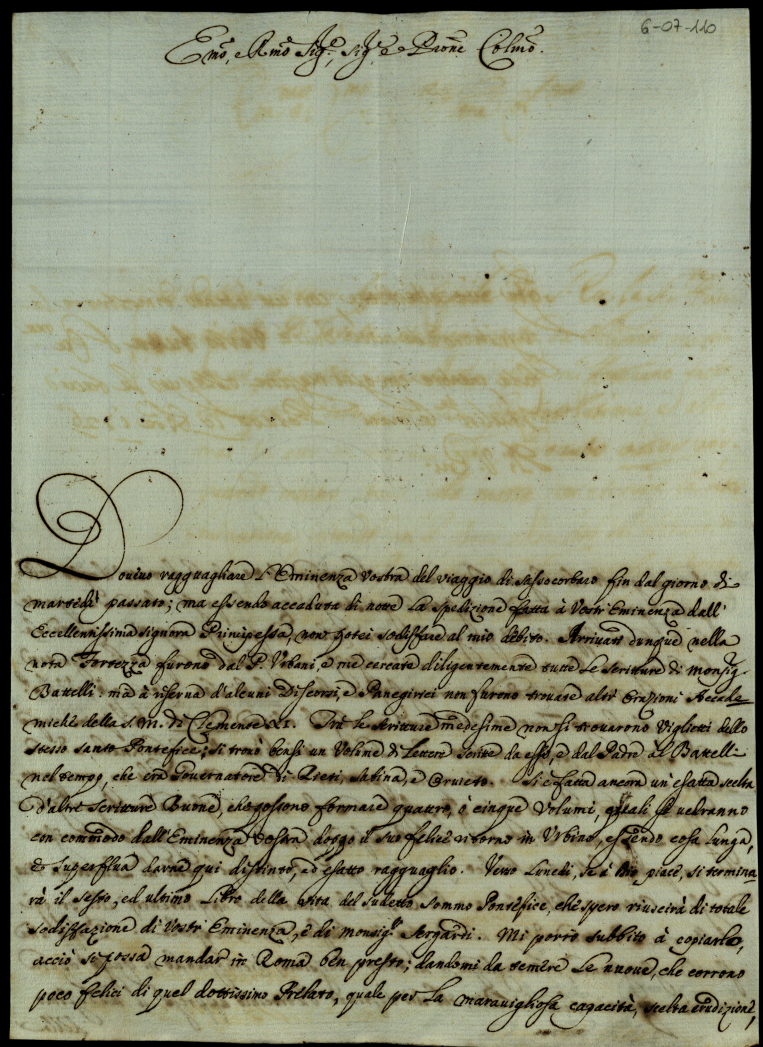 6-07-110
Emo, e Rmo Sigre, Sigre e Prone Colmo.
Dovivo ragguagliare l'Eminenza Vostra del viaggio di Sassocorbaro fin dal giorno di
martedì passato; ma essendo accaduta di nove la spedizione fatta à Vostr'Eminenza dall'
Eccellentissima Signora Principessa, non potei sodisfare al mio debito. Arrivati dunque nella
nota Fortezza furono dal P. Vbani, e me cercate diligentemente tutte le scritture di Monsigr
Battelli. mà à riserva d'alcuni Discorsi, e Panegirici non furono trovate altre Orazioni Accade=
miche della S. M. di Clemente XI. Trà le scritture medesime non si trovarono Viglietti dello
stesso santo Pontefice; si trovò bensì un Volume di Lettere scritte da esso, e dal Padre al Battelli
nel tempo, che era Governatore di Rieti, Sabina, e Orvieto. Si è fatta ancora un'esatta scelta
d'altre scritture Buone, che possono formare quattro, ò cinque Volumi, quali si vedranno
con commodo dall'Eminenza Vostra dopo il suo felice ritorno in Vrbino, essendo cosa lunga,
e superflua darne qui distinto, ed esatto ragguaglio. Verso Lunedì, se à Dio piace, si termina=
rà il sesto, ed ultimo Libro della vita del sudetto sommo Pontefice, che spero riuscirà di totale
sodisfazione di Vostr'Eminenza, e di monsigr Sergardi. Mi porrò subbito à copiarlo,
acciò si possa mandar in Roma ben presto; dandomi da temere le nuove, che corrono
poco felici di quel dottissimo Prelato, quale per la maravigliosa capacità, scelta erudizione,